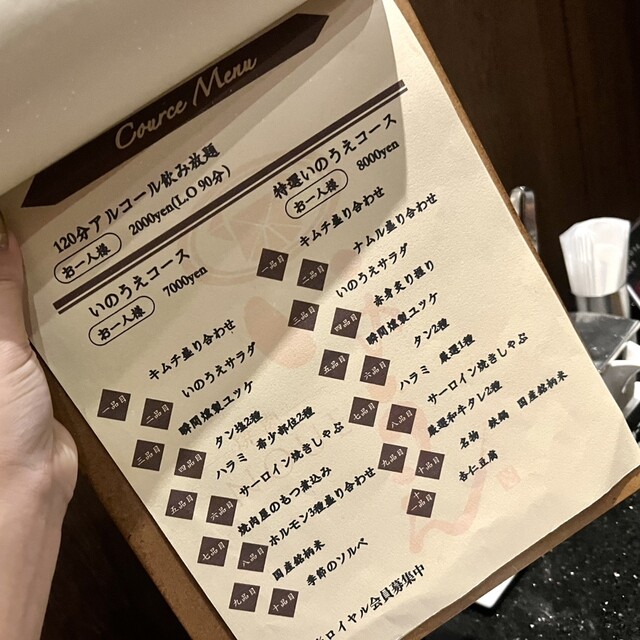 Cource Menu
120分アルコール飲み放題
お一人様 2000yen(L.O 90分)
いのうえコース
お一人様 7000yen
一品目 キムチ盛り合わせ
二品目 いのうえサラダ
三品目 瞬間燻製ユッケ
四品目 タン塩2種
五品目 ハラミ 希少部位2種
六品目 サーロイン焼きしゃぶ
七品目 焼肉屋のもつ煮込み
八品目 ホルモン3種盛り合わせ
九品目 国産銘柄米
十品目 季節のソルベ
特選いのうえコース
お一人様 8000yen
一品目 キムチ盛り合わせ
二品目 ナムル盛り合わせ
三品目 いのうえサラダ
四品目 赤身炙り握り
五品目 瞬間燻製ユッケ
六品目 タン2種
七品目 ハラミ 厳選1種
八品目 サーロイン焼きしゃぶ
九品目 厳選和牛タレ2種
十品目 名物 鉄鍋 国産銘柄米
十一品目 杏仁豆腐
ロイヤル会員募集中